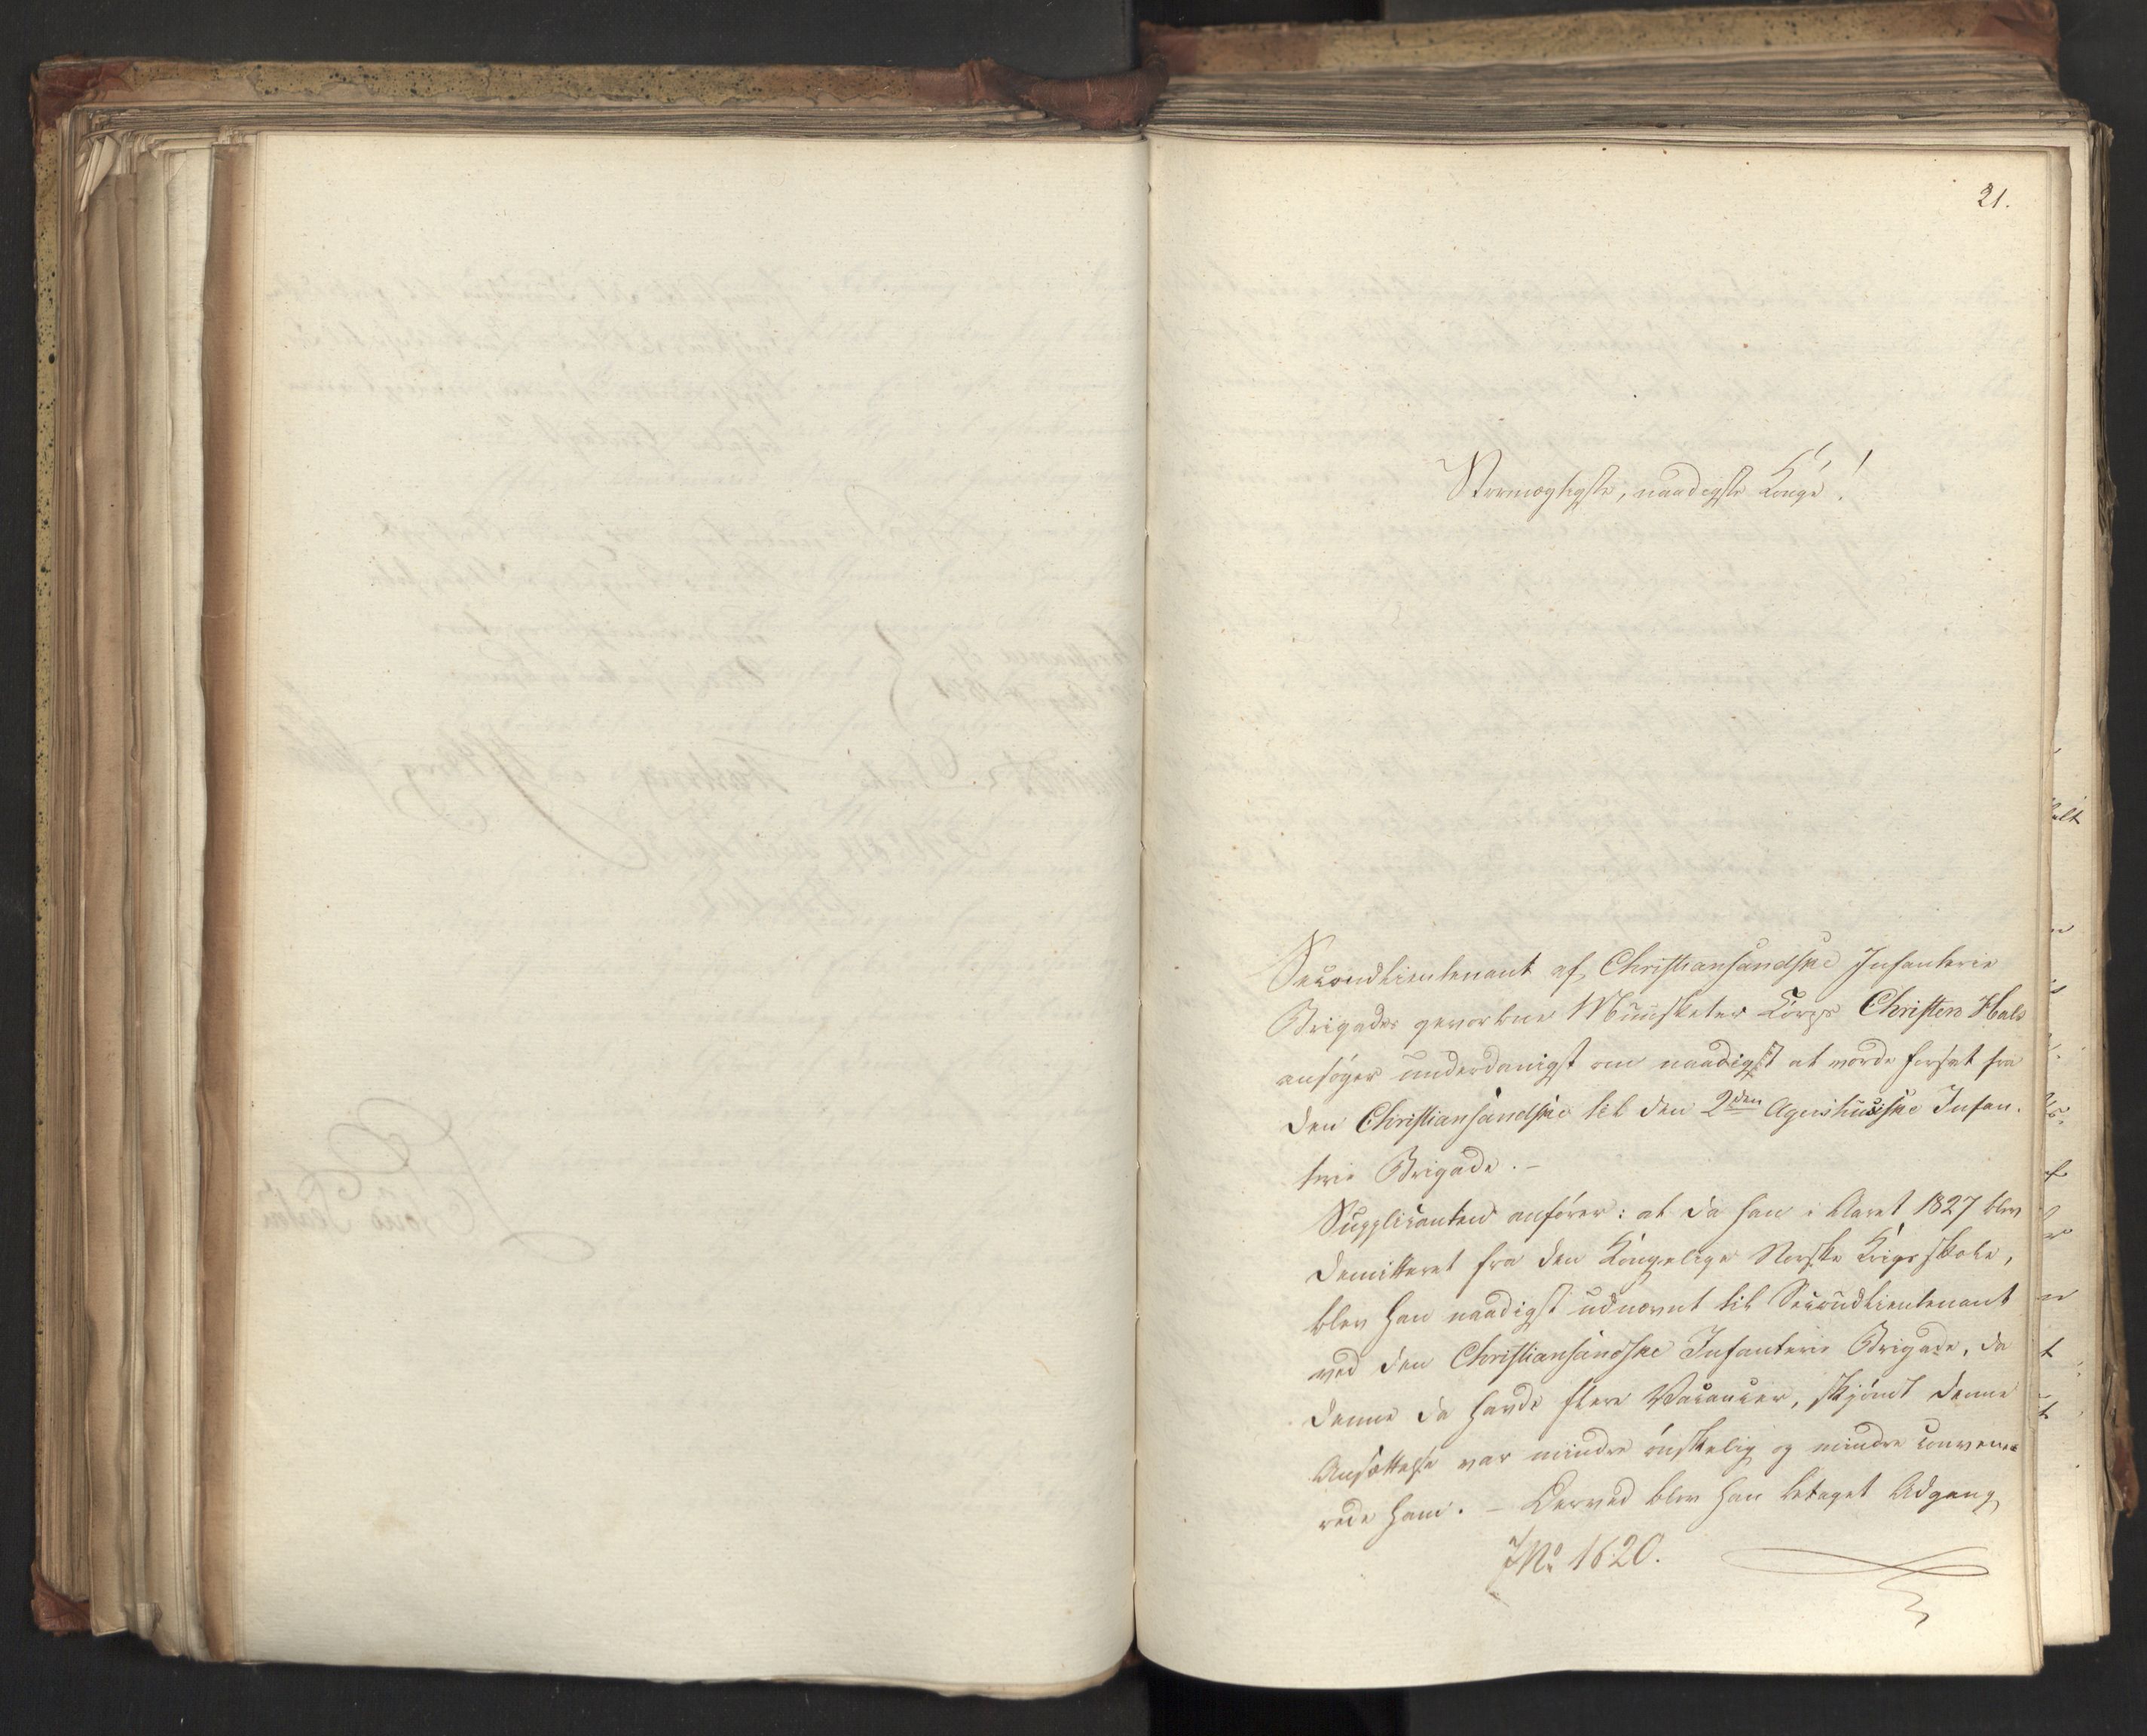 21.
Stormægtigste, naadigste Konge!
Secondlieutenant af Christiansandske Infanterie
Brigades gevorbne Musketer Corps Christen Hals
ansøger underdanigst om naadigst at vorde forsat fra
den Christiansandske til den 2den Agershuusiske Infan-
terie Brigade. -
Supplicanten anfører: at da han i Aaret 1827 blev
demitteret fra den Kongelige Norske Krigsskole,
blev han naadigst udnævnt til Secondlieutenant
ved den Christiansandske Infanterie Brigade, da
denne da havde flere Vacancer, skjønt denne
Ansættelse var mindre ønskelig og mindre conveni-
rede ham. - Derved blev han betaget Adgang
JNo 1620.